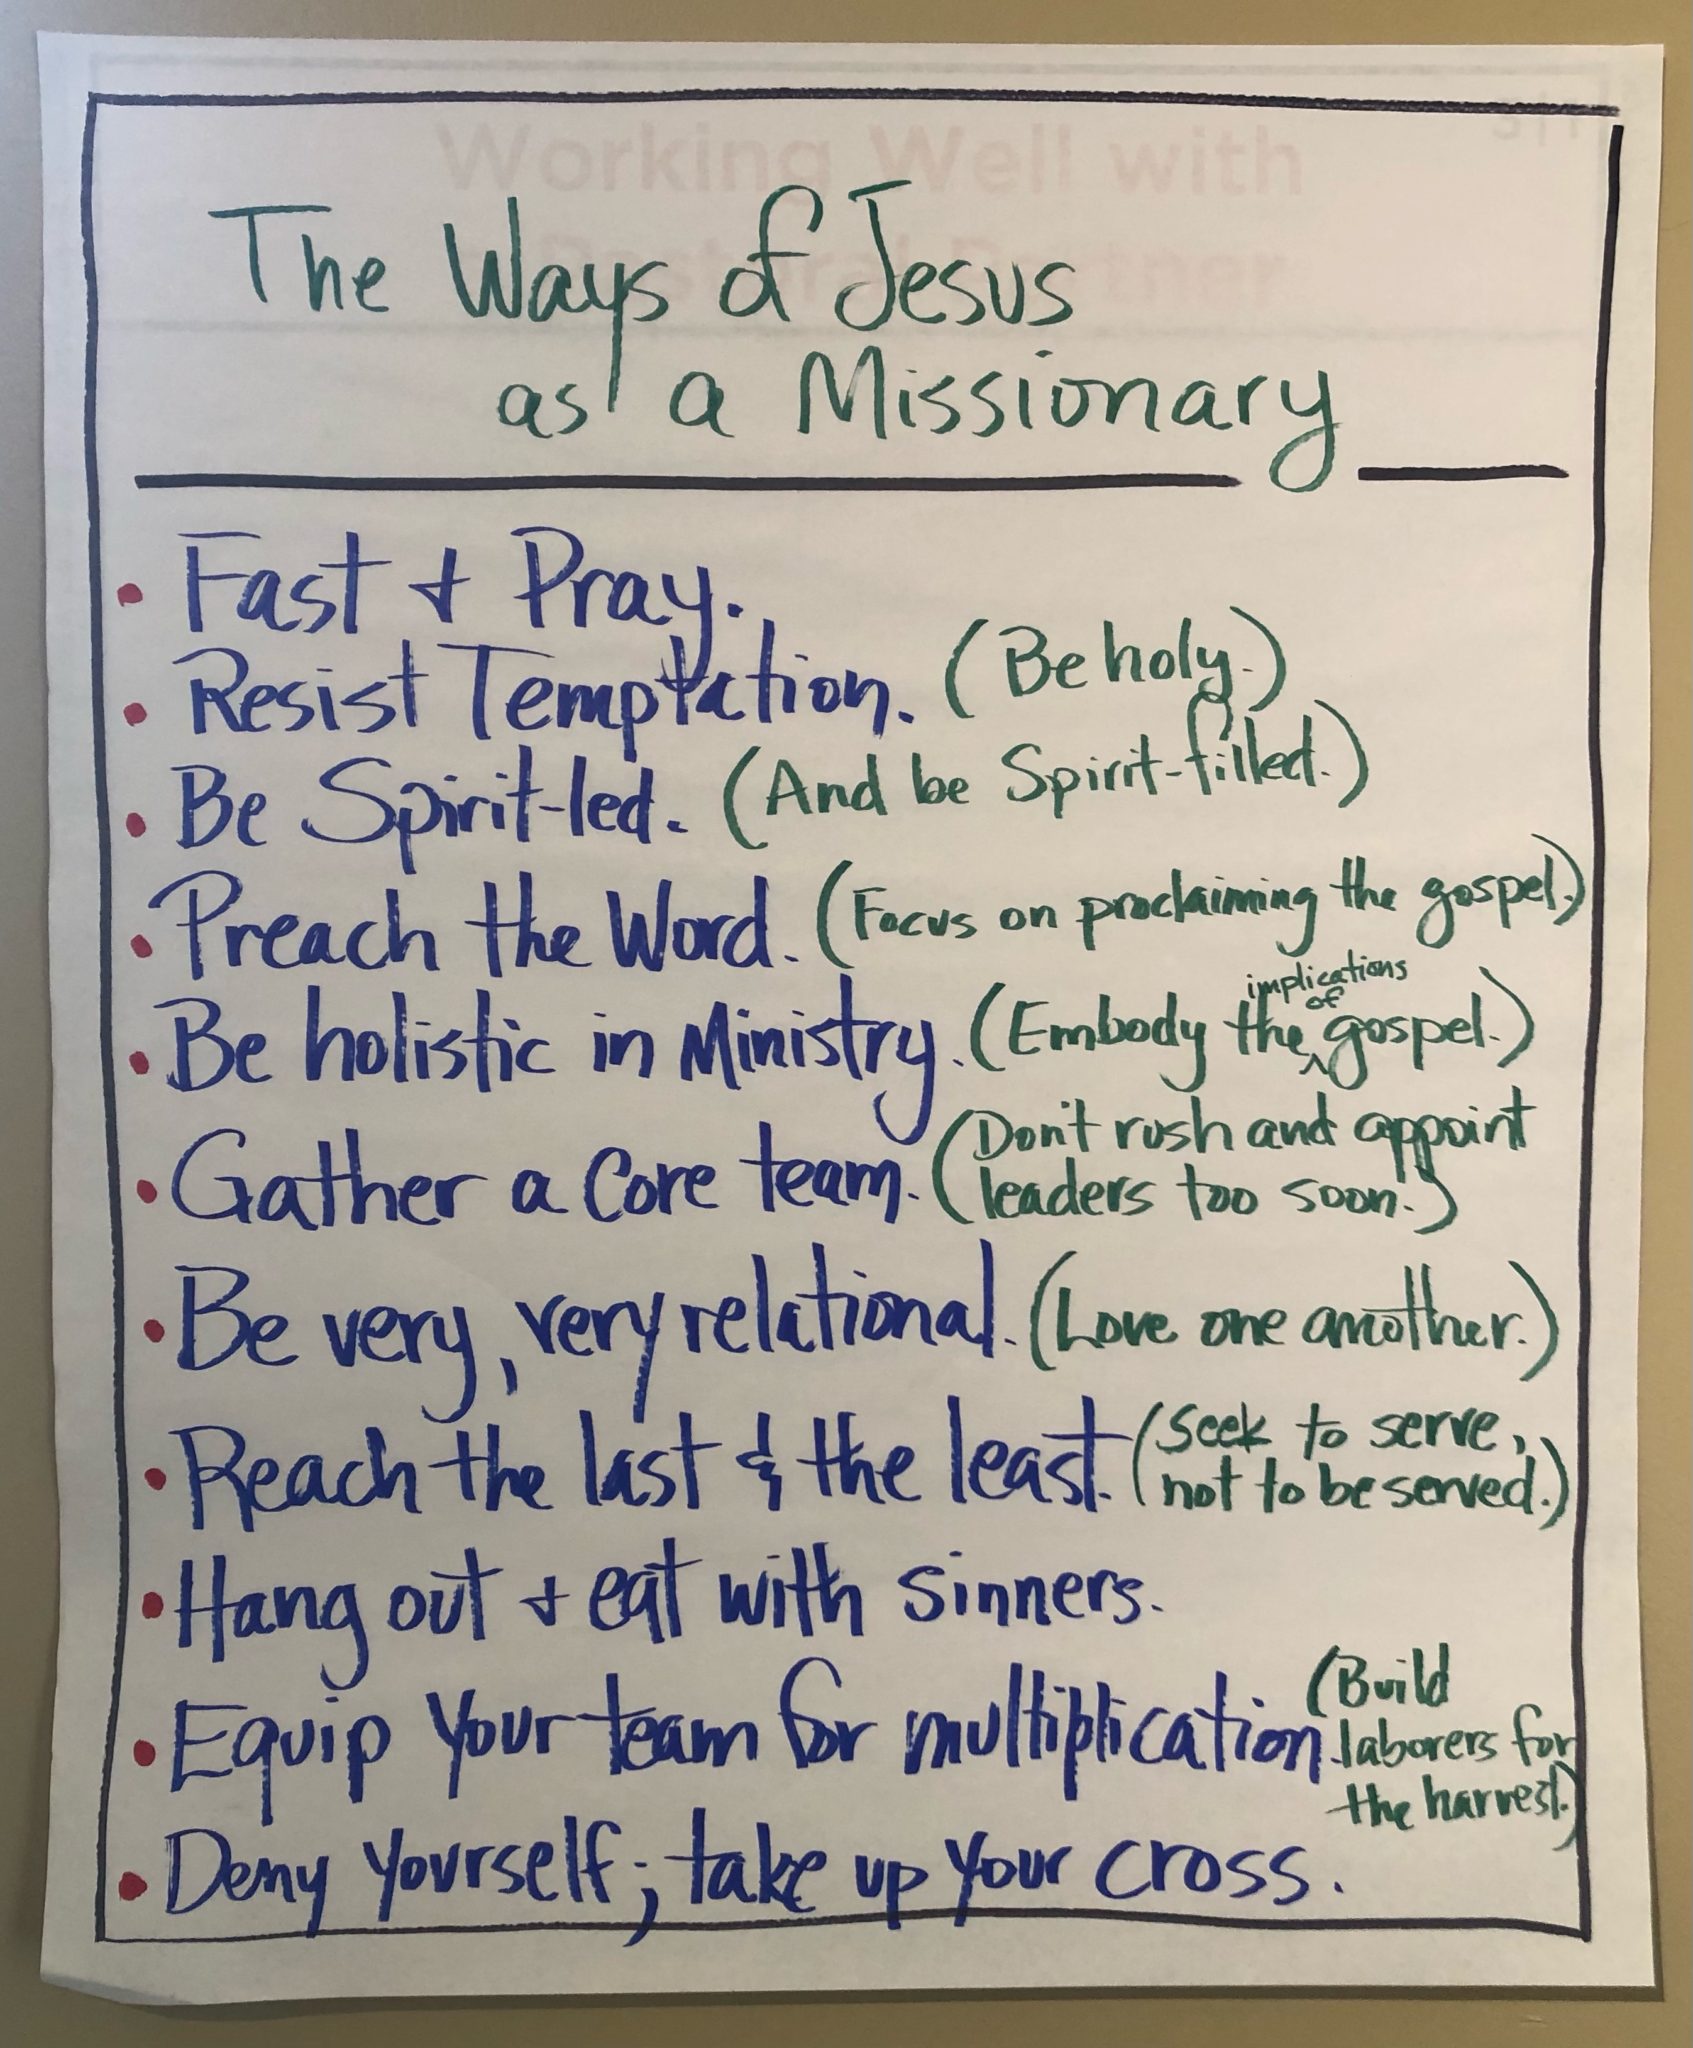 Working Well with
Partner
The Ways of Jesus
as a Missionary
• Fast + Pray.
• Resist Temptation. (Be holy.)
• Be Spirit-led. (And be Spirit-filled.)
• Preach the Word. (Focus on proclaiming the gospel.)
implications
of
• Be holistic in Ministry. (Embody the ^ gospel.)
• Gather a core team. (Don't rush and appoint
leaders too soon.)
• Be very, very relational. (Love one another.)
• Reach the last & the least. (Seek to serve,
not to be served.)
• Hang out + eat with sinners.
• Equip your team for multiplication. (Build
laborers for
the harvest.)
• Deny yourself; take up your cross.